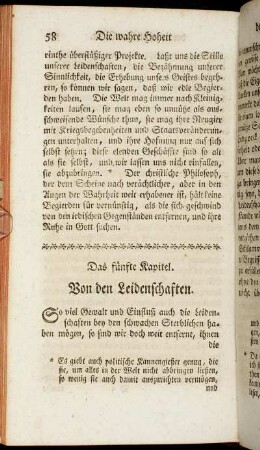 58 Die wahre Hoheit
rinthe überflüßiger Projekte. Laßt uns die Stille
unserer Leidenschaften, die Bezähmung unserer
Sinnlichkeit, die Erhebung unsers Geistes begeh-
ren, so können wir sagen, daß wir edle Begier-
den haben. Die Welt mag immer nach Kleinig-
keiten laufen, sie mag eben so unnütze als aus-
schweifende Wünsche thun, sie mag ihre Neugier
mit Kriegsbegebenheiten und Staatsveränderun-
gen unterhalten, und ihre Hofnung nur auf sich
selbst setzen; diese elenden Geschäfte sind so alt
als sie selbst, und wir lassen uns nicht einfallen,
sie abzubringen. * Der christliche Philosoph,
der dem Scheine nach verächtlicher, aber in den
Augen der Wahrheit weit erhabener ist, hält keine
Begierden für vernünftig, als die sich geschwind
von den irdischen Gegenständen entfernen, und ihre
Ruhe in Gott suchen.
Das fünfte Kapitel.
Von den Leidenschaften.
So viel Gewalt und Einfluß auch die Leiden-
schaften bey den schwachen Sterblichen ha-
ben mögen, so sind wir doch weit entfernt, ihnen
die
* Es giebt auch politische Kannengießer genug, die
sie, um alles in der Welt nicht abbringen ließen,
so wenig sie auch damit auszurichten vermögen,
und